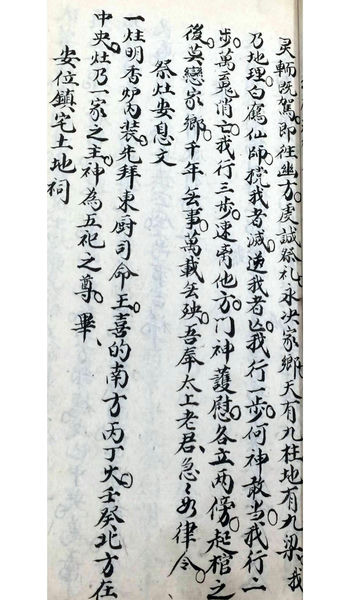 灵輀既驾即往幽方虔誠祭礼永决家鄉天有九柱地有九梁我
乃地理白鶴仙師撓我者滅逆我者亡我行一步何神敢当我行二
步萬鬼消亡我行三步速离他方门神護慰各立两傍起棺之
後莫戀家鄉千年無事萬載無殃吾奉太上老君急々如律令
祭灶安息文
一炷明香炉内装先拜東厨司命王喜的南方丙丁火壬癸北方在
中央灶乃一家之主神為五祀之尊畢
安位鎮宅土地祠